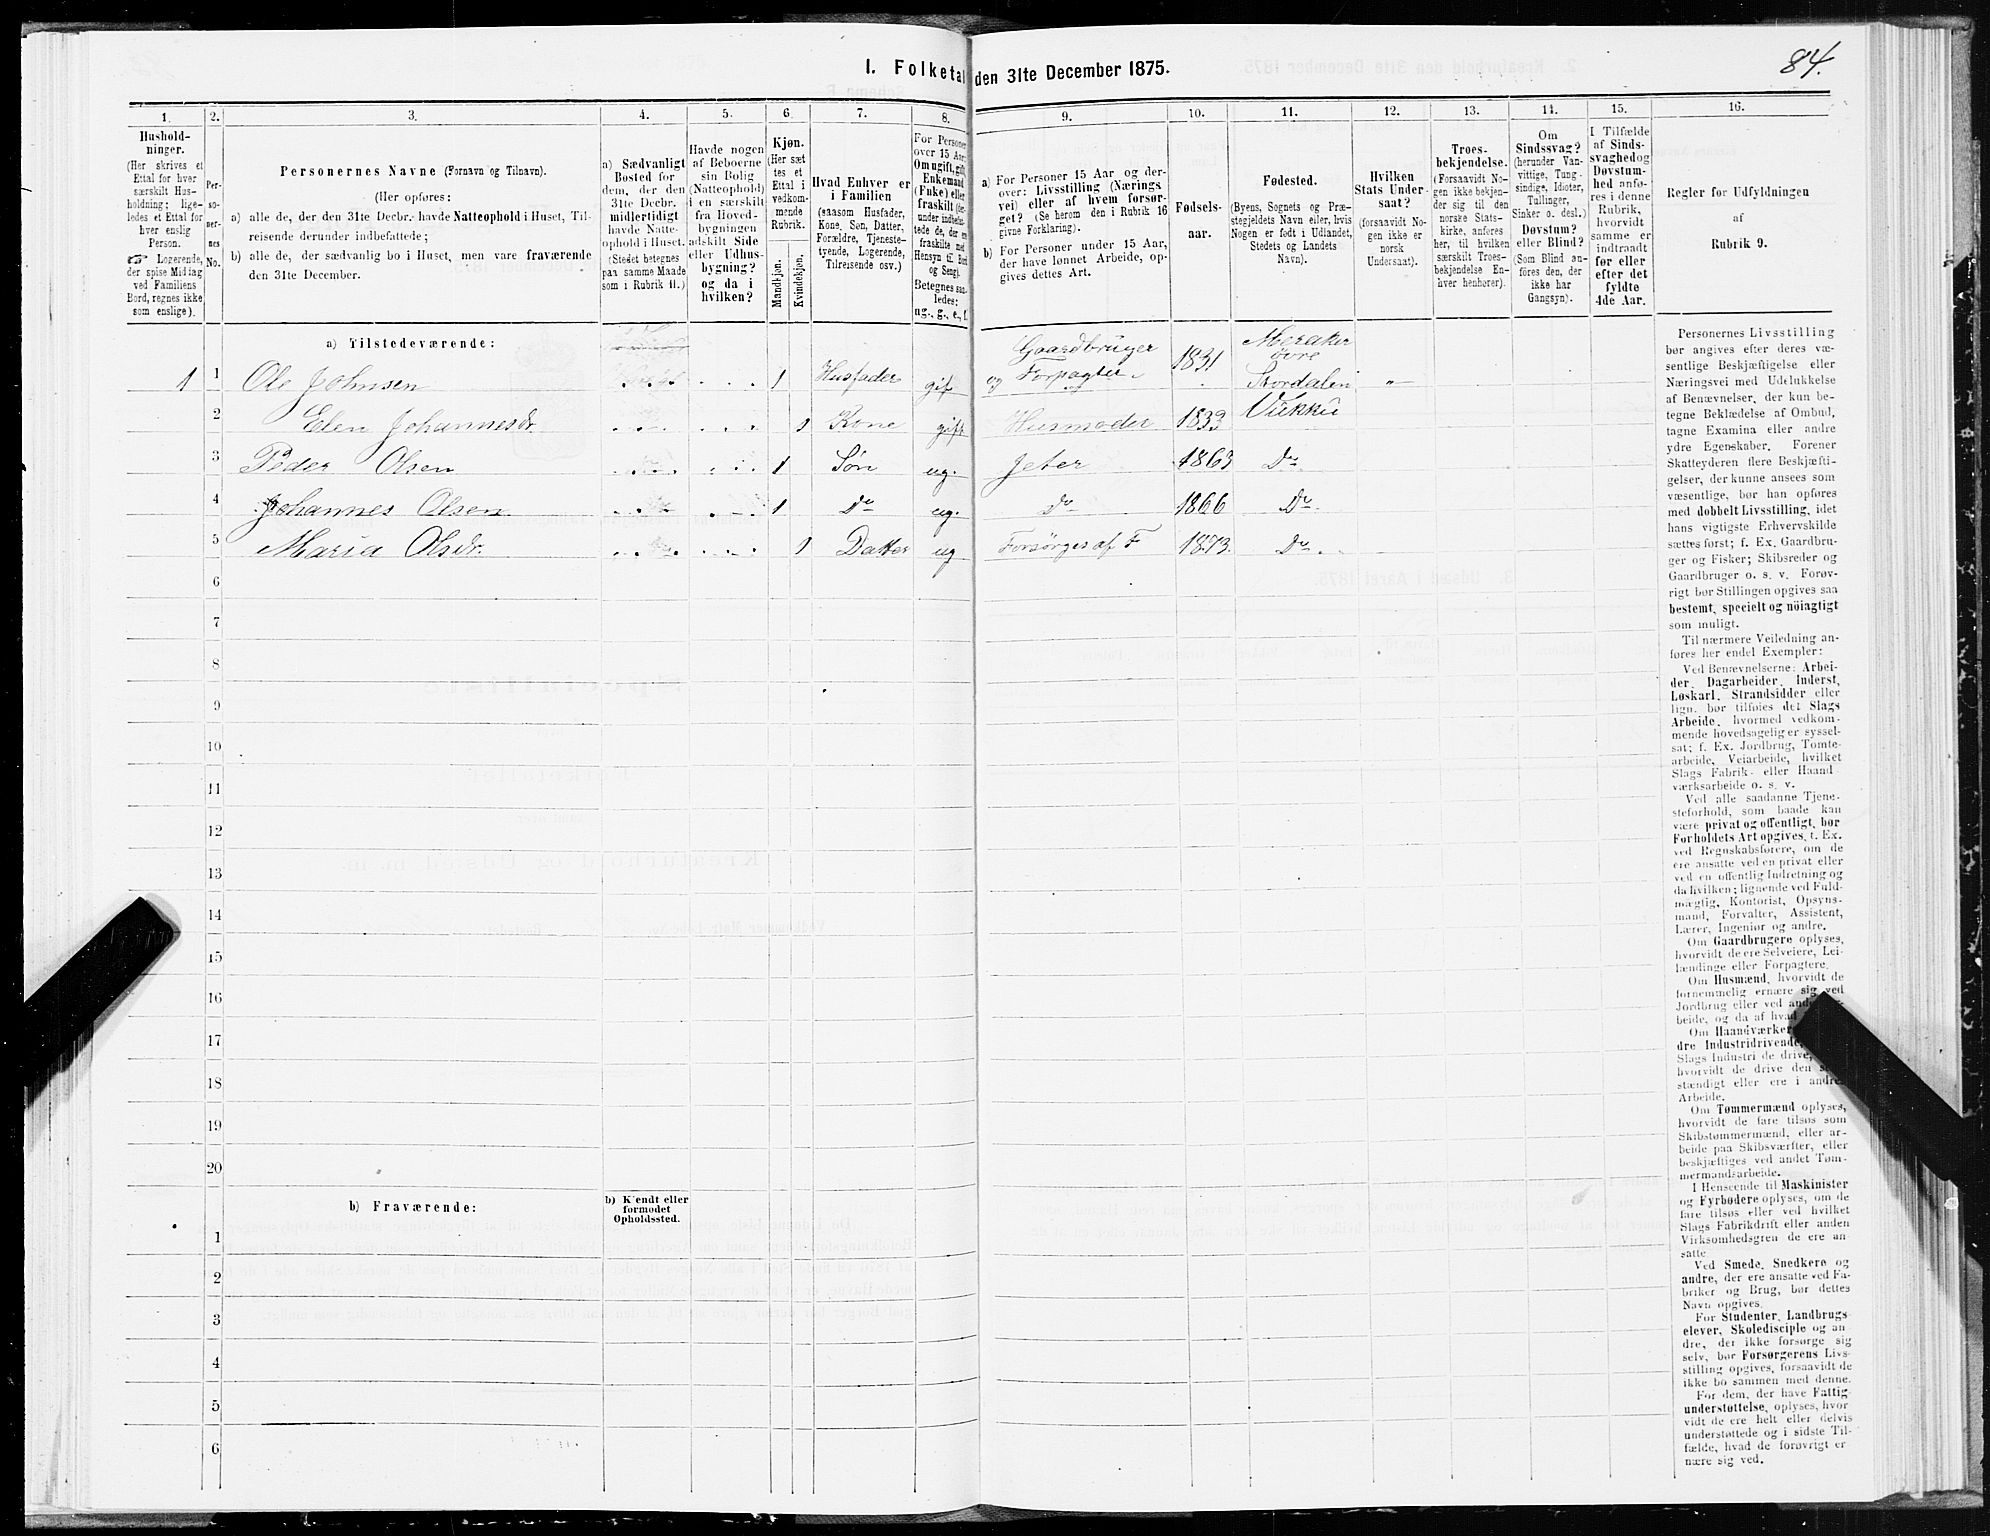 84.
I. Folketal den 31te December 1875.
1.
Hushold-
ninger.
(Her skrives et
Ettal for hver
særskilt Hus-
holdning; lige-
ledes et Ettal for
hver enslig
Person.
☞ Logerende,
der spise Middag
ved Familiens
Bord, regnes ikke
som enslige).
2.
Per-
so-
ner-
nes
No.
3.
Personernes Navne (Fornavn og Tilnavn).
(Her opføres:
a) alle de, der den 31te Decbr. havde Natteophold i Huset, Til-
reisende derunder indbefattede;
b) alle de, der sædvanlig bo i Huset, men vare fraværende
den 31te December.
4.
a) Sædvanligt
Bosted for
dem, der den
31te Decbr.
midlertidigt
havde Natte-
ophold i Huset.
(Stedet betegnes
paa samme Maade
som i Rubrik 11.)
5.
Havde nogen
af Beboerne
sin Bolig
(Natteophold)
i en særskilt
fra Hoved-
bygningen
adskilt Side
eller Udhus-
bygning?
og da i
hvilken?
6.
Kjøn.
(Her sæt
tes et
Ettal i
vedkom-
mende
Rubrik.
Mandkjøn.
Kvindekjøn.
7.
Hvad Enhver er
i Familien
(saasom Husfader,
Kone, Søn, Datter,
Forældre, Tjeneste-
tyende, Logerende,
Tilreisende osv.)
8.
For Personer
over 15 Aar:
Om ugift, gift,
Enkemand
(Enke) eller
fraskilt (der-
under indbefat-
tede de, der ere
fraskilte med
Hensyn til Bord
og Seng).
Betegnes saa-
ledes:
ug., g., e., f.
9.
a) For Personer 15 Aar og der-
over: Livsstilling (Nærings
vei) eller af hvem forsør-
get? (Se herom den i Rubrik 16
givne Forklaring).
b) For Personer under 15 Aar,
der have lønnet Arbeide, op-
gives dettes Art.
10.
Fødsels-
aar.
11.
Fødested.
(Byens, Sognets og Præ-
stegjeldets Navn eller, hvis
Nogen er født i Udlandet,
Stedets og Landets
Navn).
12.
Hvilken
Stats Under-
saat?
(forsaavidt No-
gen ikke er
norsk
Undersaat).
13.
Troes-
bekjendelse.
(Forsaavidt No-
gen ikke bekjen-
der sig til den
norske Stats-
kirke, anføres
her, til hvilken
særskilt Troes-
bekjendelse En-
hver henhører).
14.
Om
Sindssvag?
(herunder Van-
vittige, Tung-
sindige, Idioter,
Tullinger,
Sinker o. desl.)
Døvstum?
eller Blind?
(Som Blind an-
føres den, der
ikke har
Gangsyn).
15.
I Tilfælde
af Sinds-
svaghed og
Døvstum-
hed anfø-
res i denne
Rubrik,
hvorvidt
samme er
indtraadt
før eller
efter det
fyldte
4de Aar.
16.
Regler for Udfyldningen
af
Rubrik 9.
a) Tilstedeværende:
1 1 Ole Johnsen 1 Husfader gift Gaardbruger og Forpagter 1831 Meraker øvre Stordalen „
2 Elen Johannesdr. 1 Kone gift Husmoder 1833 Vukku
3 Peder Olsen 1 Søn ug. Jeter 1863 Do
4 Johannes Olsen 1 Do ug. Do 1866 Do.
5 Maria Olsdr. 1 Datter ug Forsørges af F 1873. Do.
6
7
8
9
10
11
12
13
14
15
16
17
18
19
20
b) Fraværende:
b) Kjendt eller
formodet
Opholdssted.
1
2
3
4
5
6
Personernes Livsstilling
bør angives efter deres væ-
sentlige Beskjæftigelse eller
Næringsvei med Udelukkelse
af Benævnelser, der kun be-
tegne Beklædelse af Ombud,
tagne Examina eller andre
ydre Egenskaber. Forener
Skatteyderen flere Beskjæfti-
gelser, der kunne ansees som
væsentlige, bør han opføres
med dobbelt Livsstilling, idet
hans vigtigste Erhvervskilde
sættes først; f. Ex. Gaardbru-
ger og Fisker; Skibsreder og
Gaardbruger o. s. v. Forøv-
rigt bør Stillingen opgives saa
bestemt, specielt og nöiagtigt
som muligt.
Til nærmere Veiledning an-
føres her endel Exempler:
Ved Benævnelserne: Arbei-
der, Dagarbeider, Inderst,
Løskarl, Strandsidder eller
lign. bør tilføies det Slags
Arbeide, hvormed vedkom-
mende hovedsagelig er syssel-
sat; f. Ex. Jordbrug, Tomte-
arbeide, Veiarbeide, hvilket
Slags Fabrik- eller Haand-
værksarbeide o. s. v.
Ved alle saadanne Tjene-
steforhold, som baade kan
være privat og offentligt, bør
Forholdets Art opgives, f. Ex.
ved Regnskabsførere, om de
ere ansatte ved en privat eller
ved en offentlig Indretning og
da hvilken; lignende ved Fuld-
mægtig, Kontorist, Opsyns-
mand, Forvalter, Assistent,
Lærer, Ingeniør og andre.
Om Gaardbrugere oplyses,
hvorvidt de ere Selveiere, Lei-
lændinge eller Forpagtere.
Om Husmænd, hvorvidt de
fornemmelig ernære sig ved
Jordbrug eller ved
beide, og da af hvad
Om Haandværkere
dre Industridrivende,
Slags Industri de drive,
hvorvidt de drive den
stændigt eller ere i andres
Arbeide.
Om Tømmermænd oplyses,
hvorvidt de fare tilsøs som
Skibstømmermænd, eller ar-
beide paa Skibsværfter, eller
beskjæftiges ved andet Tøm-
mermandsarbeide.
I Henseende til Maskinister
og Fyrbødere oplyses, om de
fare tilsøs eller ved hvilket
Slags Fabrikdrift eller anden
Virksomhedsgren de ere an-
satte.
Ved Smede, Snedkere og
andre, der ere ansatte ved Fa-
briker og Brug, bør dettes
Navn opgives.
For Studenter, Landbrugs-
elever, Skoledisciple og an-
dre, der ikke forsørge sig
selv, bør Forsørgerens Livs-
stilling opgives, forsaavidt de
ikke bo sammen med denne.
For dem, der have Fattig-
understøttelse, oplyses, hvor-
vidt de ere helt eller delvis
understøttede og i sidste Til-
fælde, hvad de forøvrigt er-
nære sig ved.